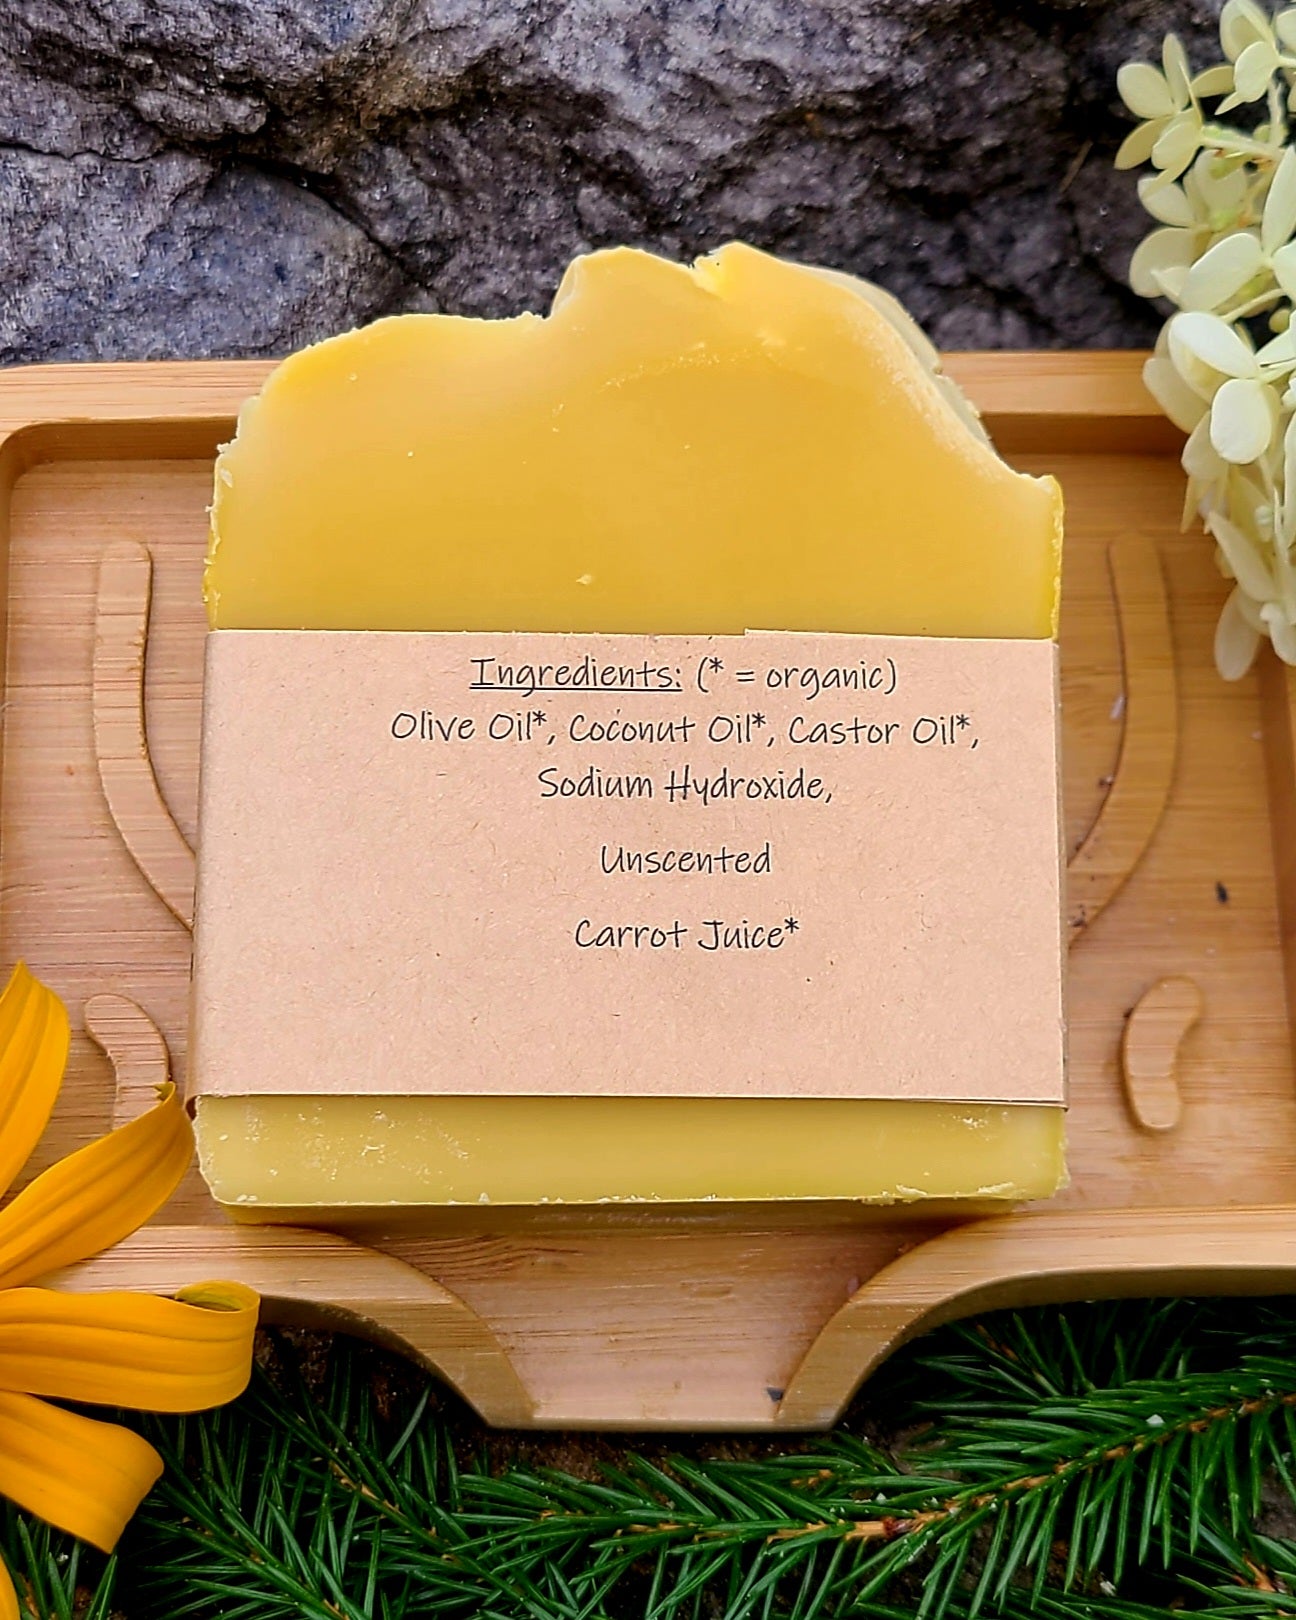 Ingredients: (* = organic)
Olive Oil*, Coconut Oil*, Castor Oil*,
Sodium Hydroxide,
Unscented
Carrot Juice*